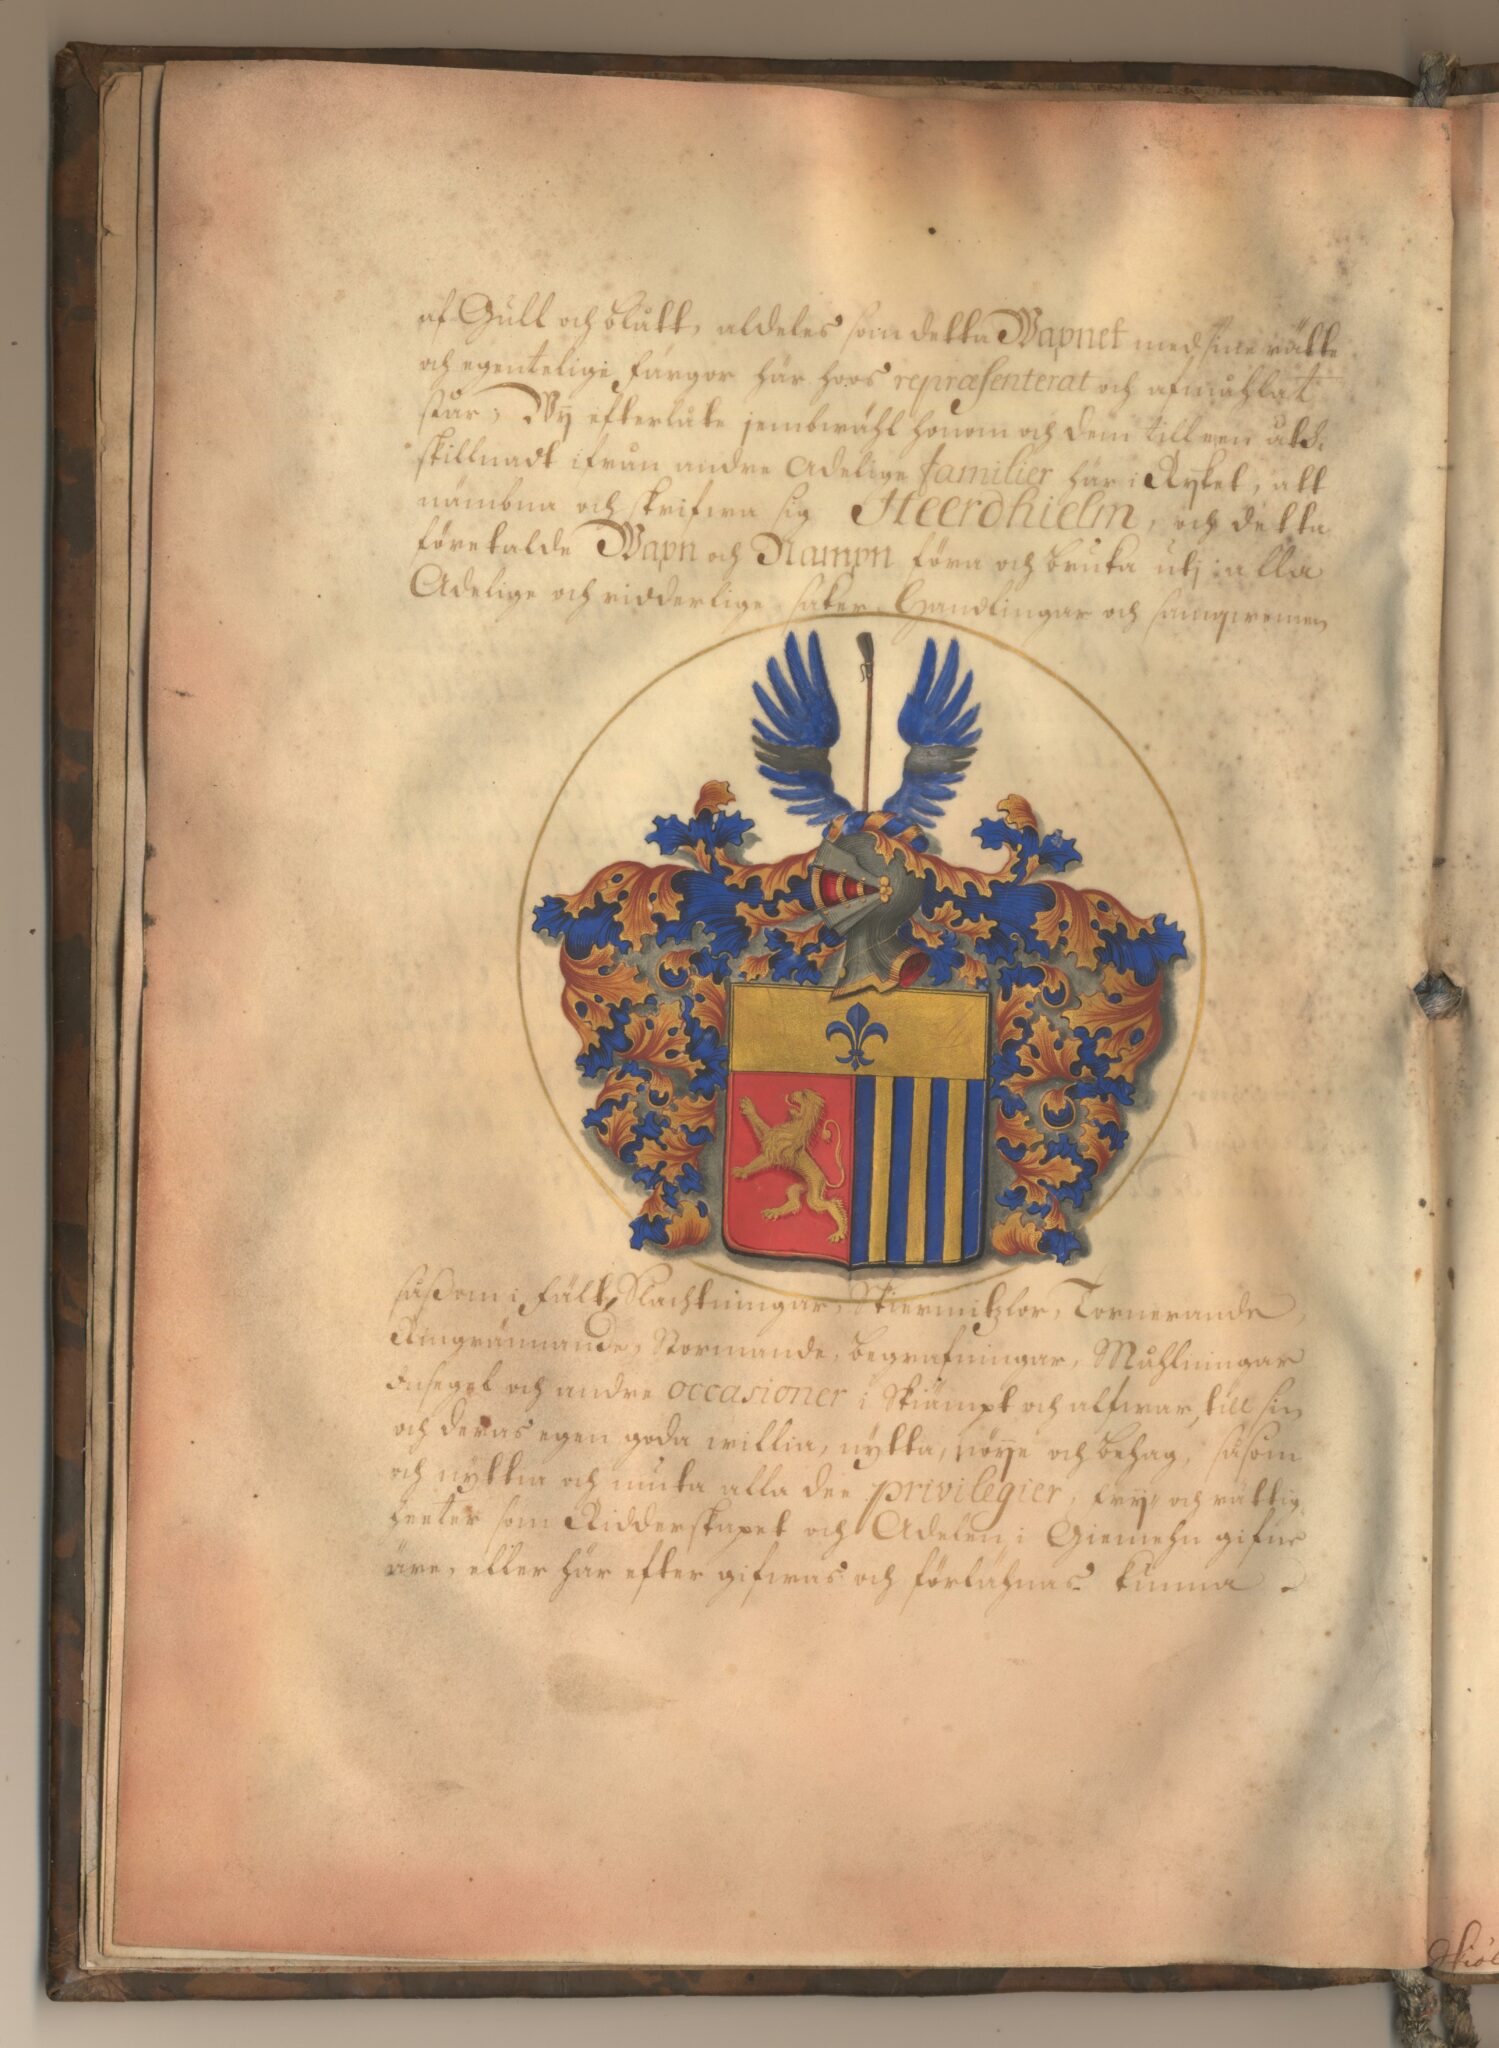 af Gull och blått, aldeles som detta Wapnet med sine rätte
och egentelige färgor här hoos repræsenterat och afmåhlat
står; Wij efterlåte jembwähl honom och dem till een åth-
skillnadt ifrån andre Adelige familier här i Rijket, att
nämbna och skrifwa sig Heerdhielm, och detta
företalde Wapn och Nampn föra och bruka utj alla
Adelige och ridderlige saker, Handlingar och samqwemen
såsom i fält, Slachtningar, Skiermitzlar, Tornerande,
Ringrännande, Stormande, begrafningar, Måhlningar
Insegel och andre occasioner i Skiämpt och alfwar, till sin
och deras egen goda willia, nytta, nöije och behag, såsom
och nyttia och niuta alla dee privilegier, frij- och rättig-
heeter som Ridderskapet och Adelen i Giemehn gifne
äre, eller här efter gifwas och förlähnas kunna